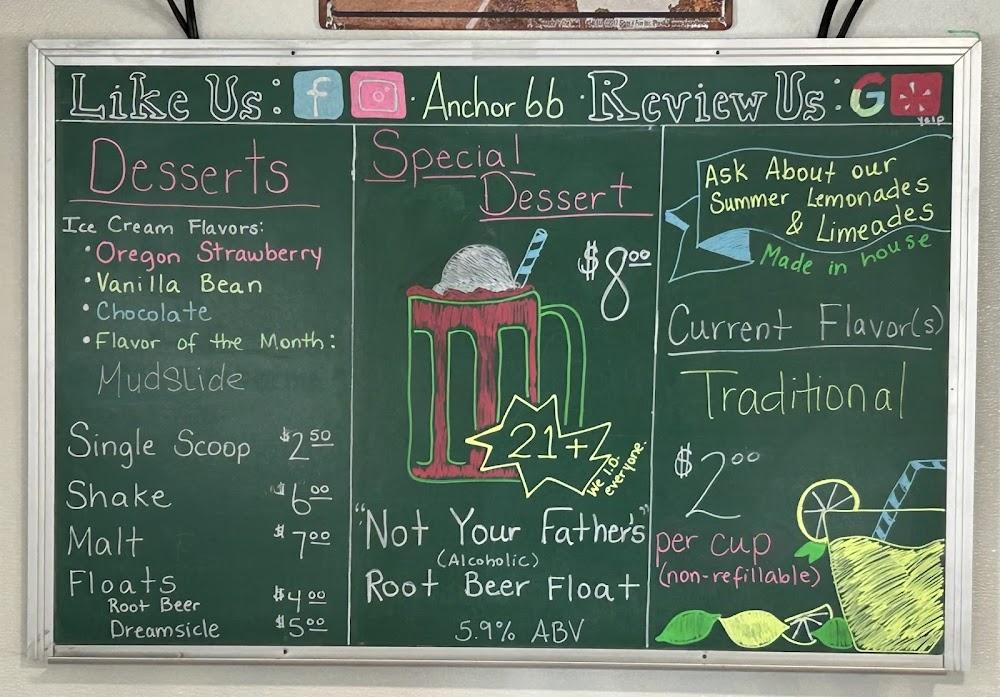 Like Us: f · Anchor 66 · Review Us: G yelp
Desserts
Ice Cream Flavors:
• Oregon Strawberry
• Vanilla Bean
• Chocolate
• Flavor of the Month:
Mudslide
Single Scoop $2.50
Shake $6.00
Malt $7.00
Floats
Root Beer $4.00
Dreamsicle $5.00
Special
Dessert
$8.00
21+
We I.D.
everyone.
"Not Your Father's"
(Alcoholic)
Root Beer Float
5.9% ABV
Ask About our
Summer Lemonades
& Limeades
Made in house
Current Flavor(s)
Traditional
$2.00
per cup
(non-refillable)